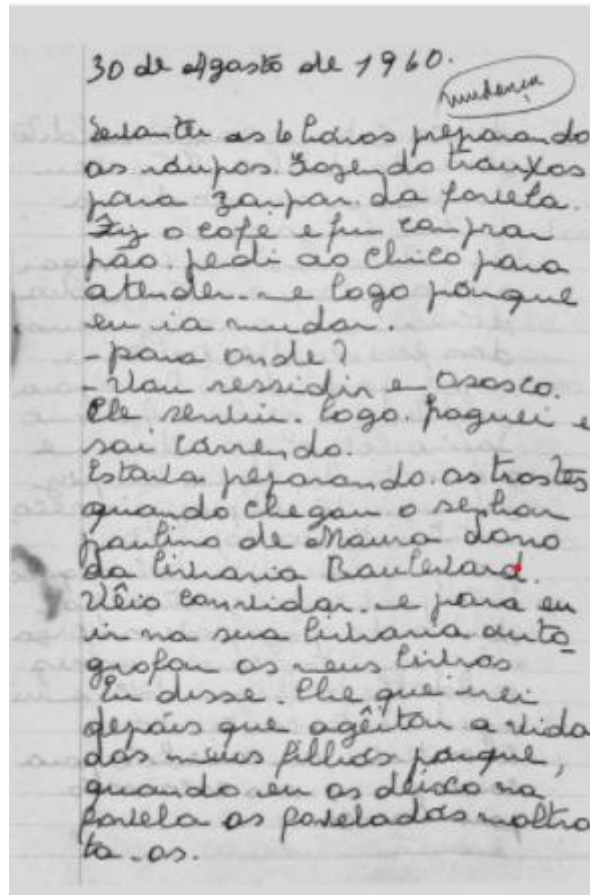 30 de Agosto de 1960.
mudança
Levantei as 6 horas preparando
as roupas. Fazendo trouxas
para zarpar da favela.
Fiz o café e fui comprar
pão pedi ao Chico para
atender-me logo porque
eu ia mudar.
- para onde?
- Vou ressidir em Osasco.
Ele sentiu. logo paguei e
sai correndo.
Estava preparando os trastes
quando chegou o senhor
paulino de Moura dono
da livraria Boulevard.
Vêio convidar-me para eu
ir na sua livraria auto-
grafar os meus livros
Eu disse-lhe que irei
depois que agêitar a vida
dos meus filhos porque,
quando eu os deixo na
favela os favelados maltra
ta-os.